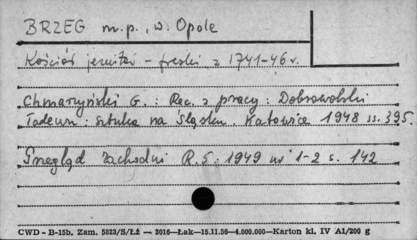 BRZEG m.p., w. Opole
Kościół jezuitów – freski z 1741-46 r.
Chmarzyński G.: Rec. z pracy: Dobrowolski
Tadeusz: Sztuka na Śląsku. Katowice 1948 ss. 395.
Przegląd Zachodni R.5: 1949 nr 1-2 s. 142
CWD - B-15b, Zam. 5823/S/Łż — 3016—Łak—15.11.56—4.000.000—Karton kl. IV A1/200 g